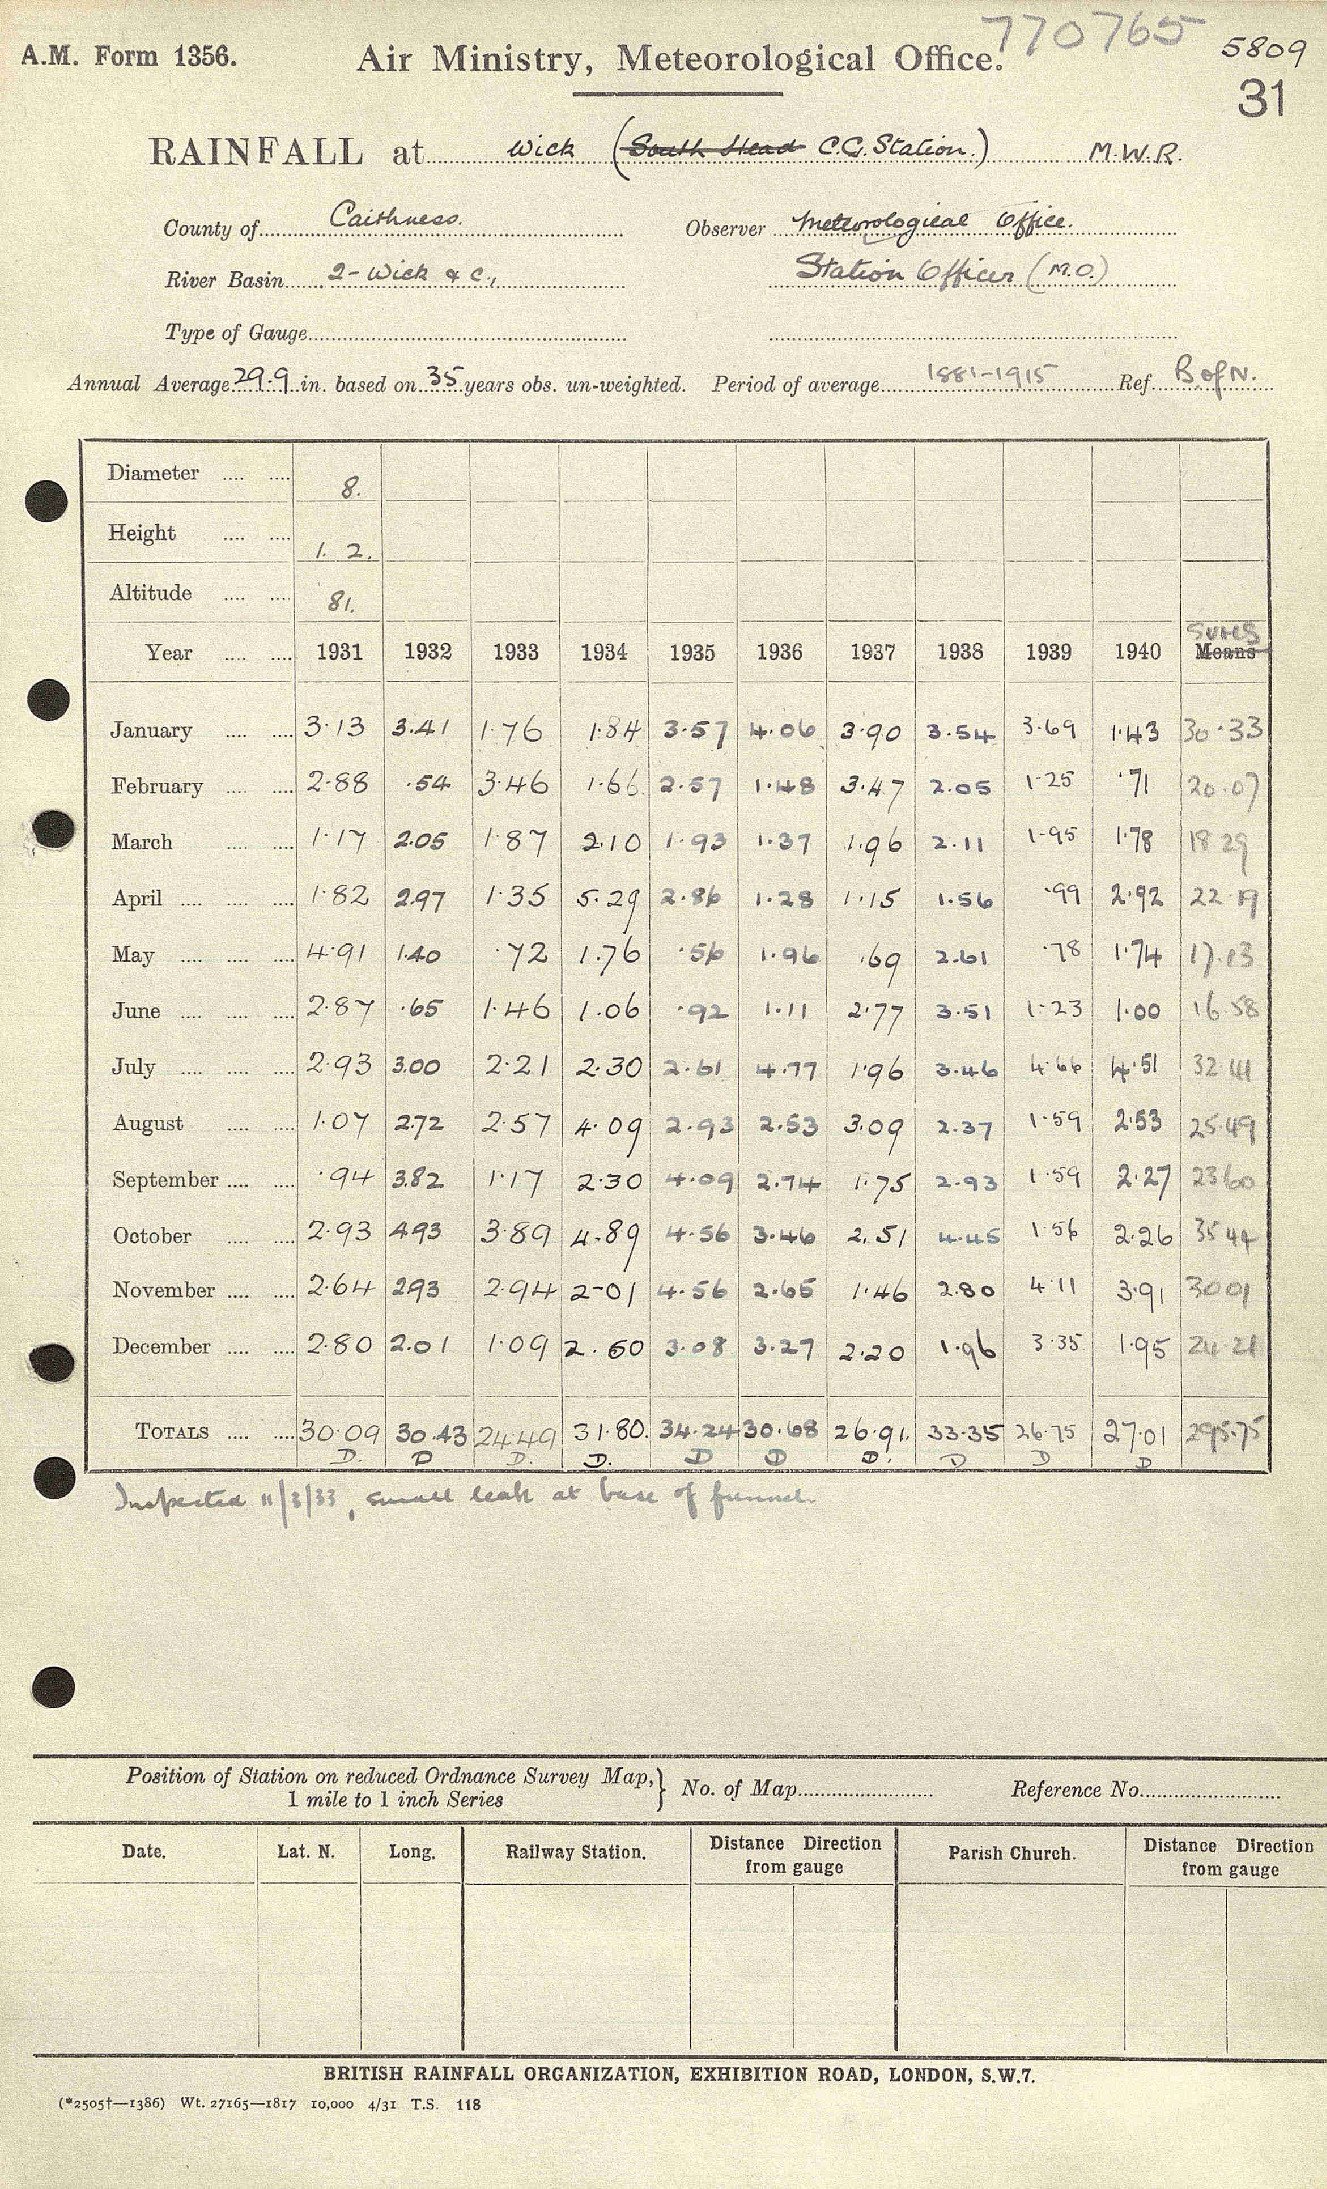 770765
A.M. Form 1356. Air Ministry, Meteorological Office. 5809
31
RAINFALL at Wick (South Head C.G. Station.) M.W.R.
County of Caithness. Observer Meteorological Office.
River Basin 2-Wick & c., Station Officer (M.O.)
Type of Gauge
Annual Average 29.9 in. based on 35 years obs. un-weighted. Period of average 1881-1915 Ref. B. of N.
Diameter 8.
Height 1. 2.
Altitude 81.
SUMS
Year 1931 1932 1933 1934 1935 1936 1937 1938 1939 1940 Means
January 3.13 3.41 1.76 1.84 3.57 4.06 3.90 3.54 3.69 1.43 30.33
February 2.88 .54 3.46 1.66 2.57 1.48 3.47 2.05 1.25 .71 20.07
March 1.17 2.05 1.87 2.10 1.93 1.37 1.96 2.11 1.95 1.78 18 29
April 1.82 2.97 1.35 5.29 2.86 1.28 1.15 1.56 .99 2.92 22.19
May 4.91 1.40 .72 1.76 .56 1.96 .69 2.61 .78 1.74 17.13
June 2.87 .65 1.46 1.06 .92 1.11 2.77 3.51 1.23 1.00 16 58
July 2.93 3.00 2.21 2.30 2.61 4.77 1.96 3.46 4.66 4.51 32 41
August 1.07 2.72 2.57 4.09 2.93 2.53 3.09 2.37 1.59 2.53 25.49
September .94 3.82 1.17 2.30 4.09 2.74 1.75 2.93 1.59 2.27 23 60
October 2.93 4.93 3.89 4.89 4.56 3.46 2.51 4.45 1.56 2.26 35 44
November 2.64 2.93 2.94 2-01 4.56 2.65 1.46 2.80 4 11 3.91 30 01
December 2.80 2.01 1.09 2.60 3.08 3.27 2.20 1.96 3.35 1.95 24.21
TOTALS 30.09 30.43 24.49 31.80. 34.24 30.68 26.91. 33.35 26.75 27.01 295.75
D. D D. D. D D D. D D D
Inspected 11/3/33, small leak at base of funnel.
Position of Station on reduced Ordnance Survey Map,} No. of Map Reference No.
1 mile to 1 inch Series
Date. Lat. N. Long. Railway Station. Distance Direction from gauge Parish Church. Distance Direction from gauge
BRITISH RAINFALL ORGANIZATION, EXHIBITION ROAD, LONDON, S.W.7.
(*2505†—1386) Wt. 27165—1817 10,000 4/31 T.S. 118